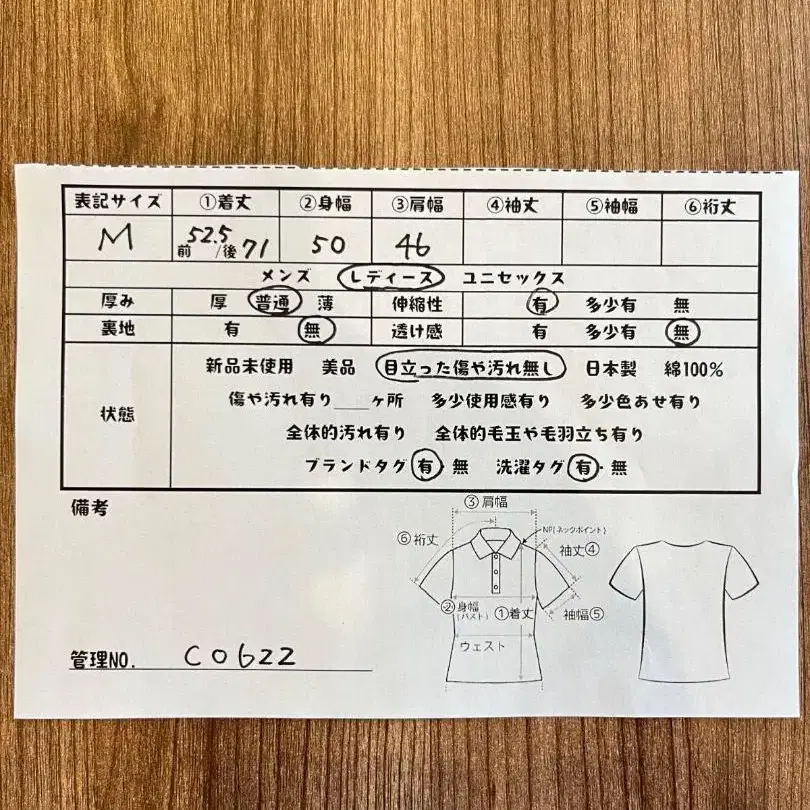 表記サイズ ①着丈 ②身幅 ③肩幅 ④袖丈 ⑤袖幅 ⑥裄丈
M 前52.5/後71 50 46
メンズ レディース ユニセックス
厚み 厚 普通 薄 伸縮性 有 多少有 無
裏地 有 無 透け感 有 多少有 無
状態
新品未使用 美品 目立った傷や汚れ無し 日本製 綿100%
傷や汚れ有り___ヶ所 多少使用感有り 多少色あせ有り
全体的汚れ有り 全体的毛玉や毛羽立ち有り
ブランドタグ 有・無 洗濯タグ 有・無
備考
③肩幅
NP(ネックポイント)
⑥裄丈
袖丈④
②身幅
(バスト)
①着丈
袖幅⑤
ウェスト
管理NO. C0622